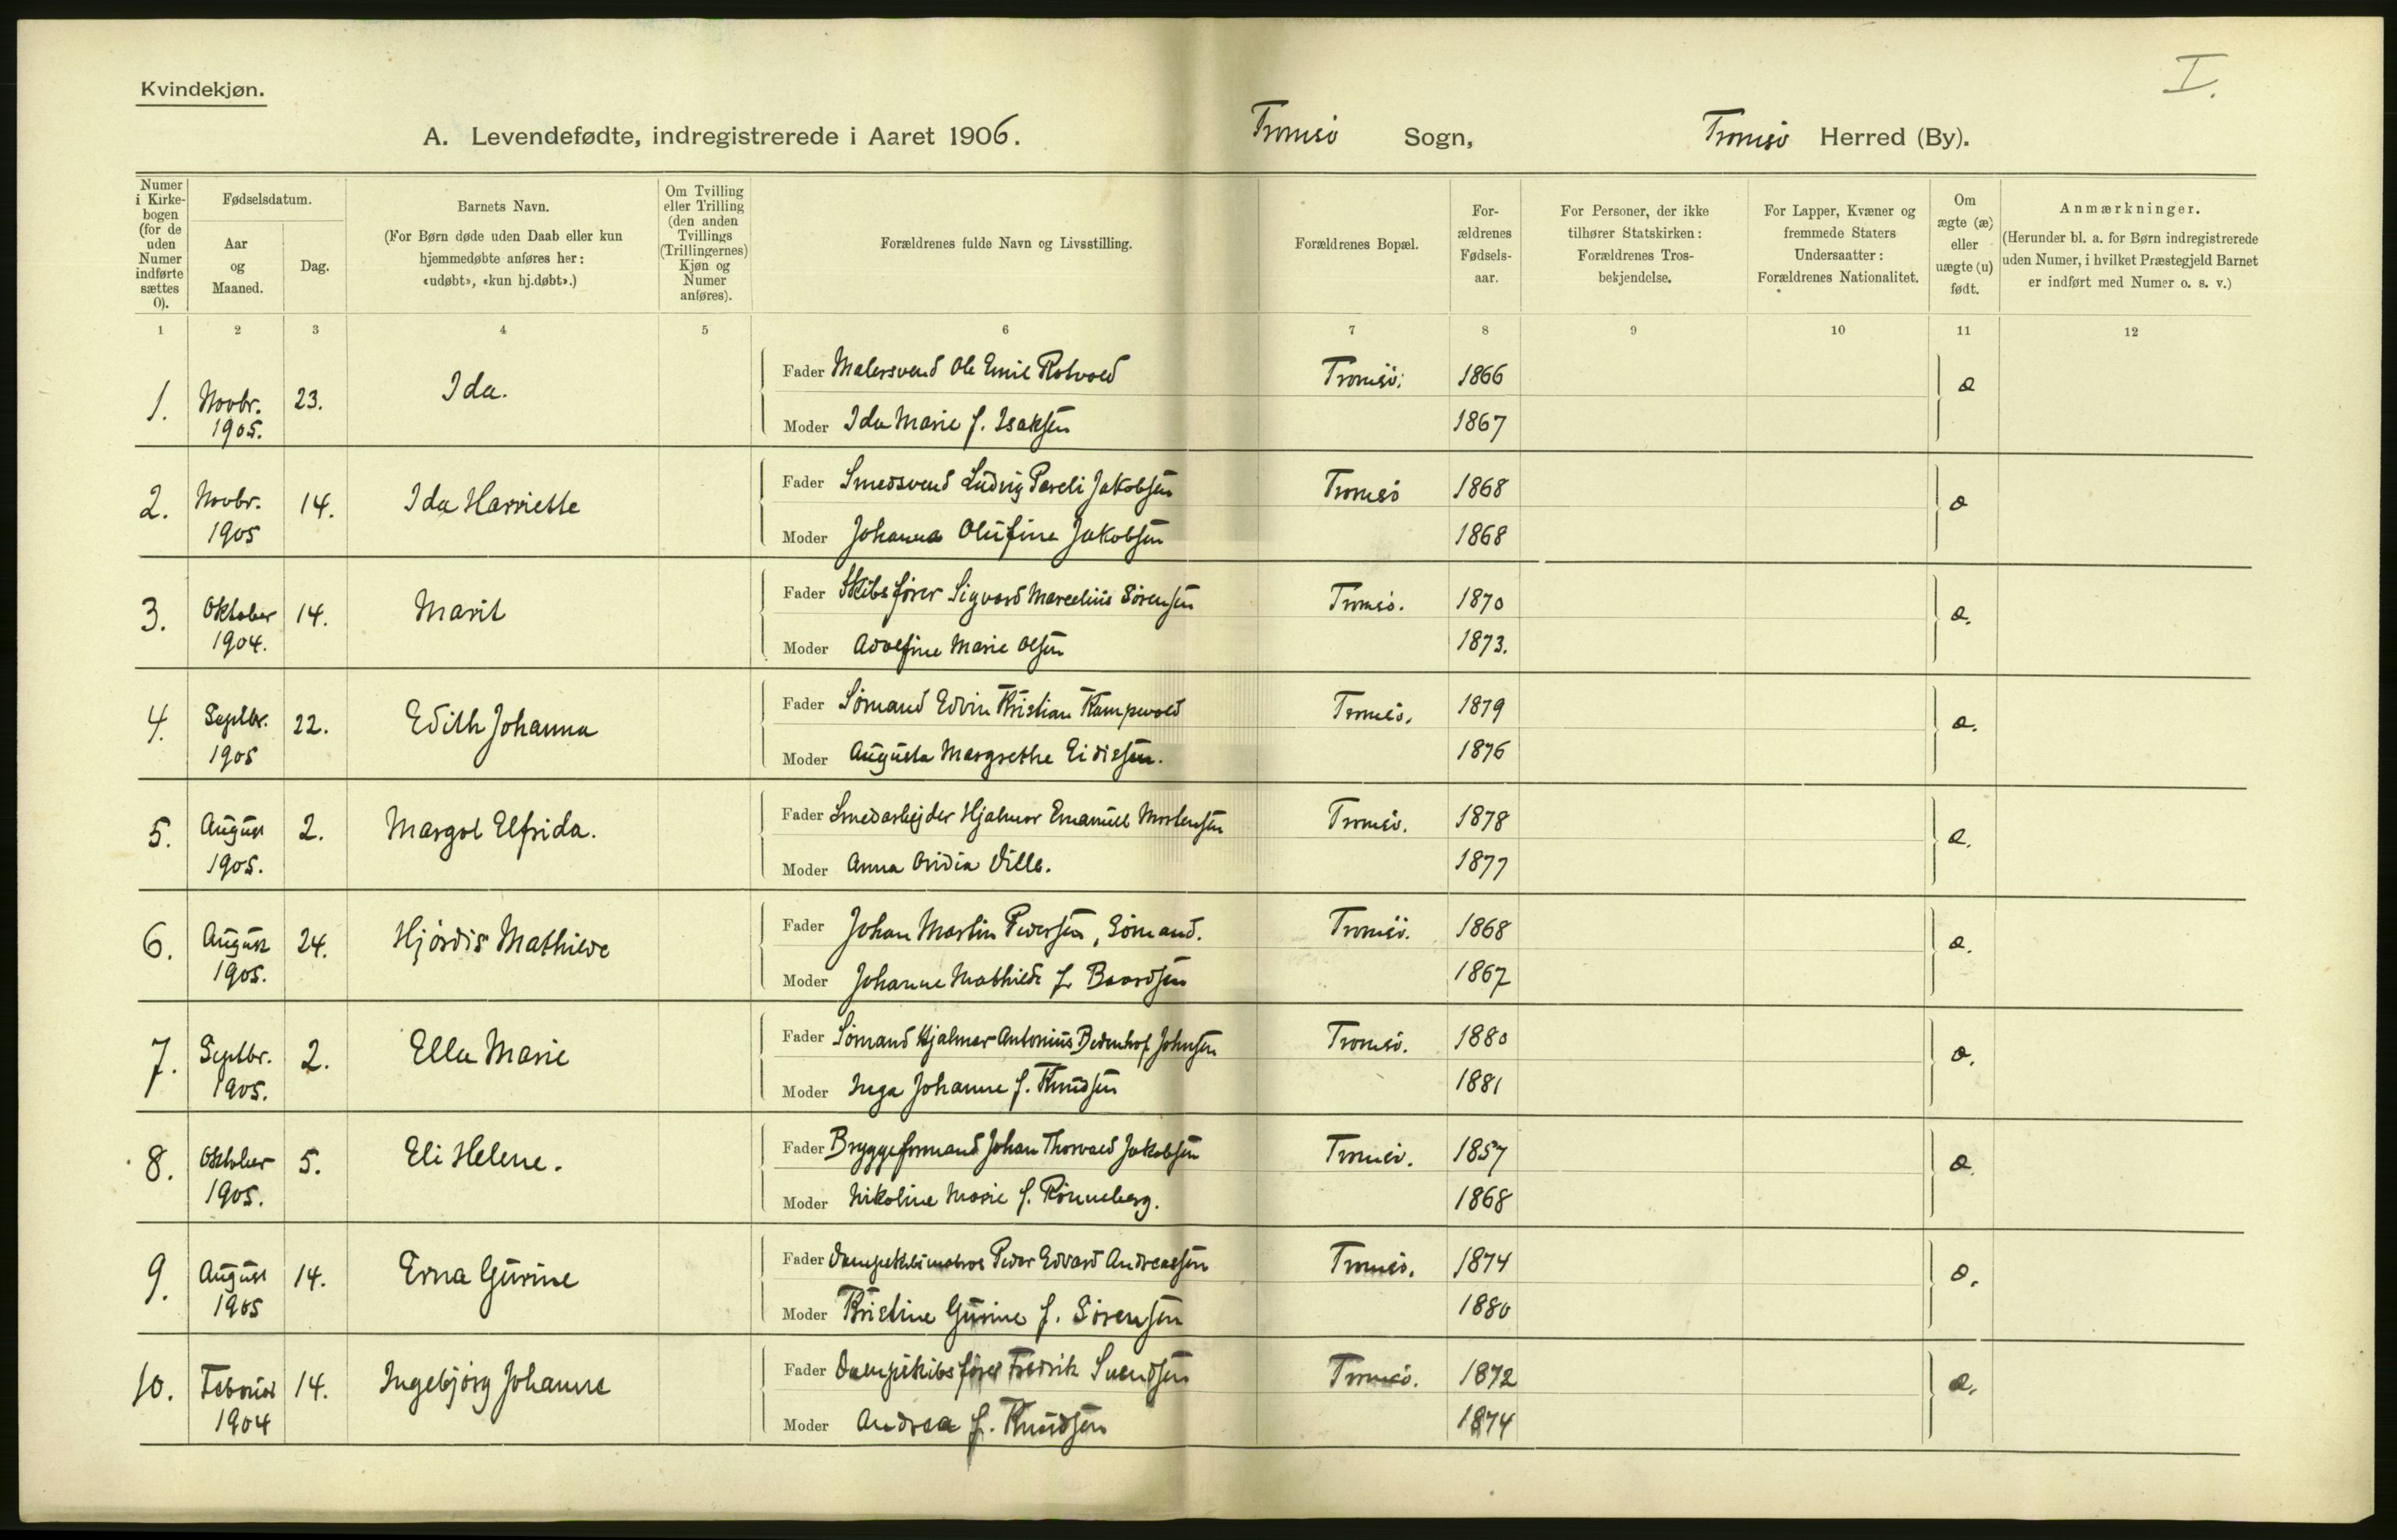 I.
Kvindekjøn.
A. Levendefødte, indregistrerede i Aaret 1906. Tromsø Sogn, Tromsø Herred (By).
Numer i Kirkebogen (for de uden Numer indførte sættes 0).
Fødselsdatum.
Aar og Maaned.
Dag.
Barnets Navn.
(For Børn døde uden Daab eller kun hjemmedøbte anføres her: «udøbt», «kun hj.døbt».)
Om Tvilling eller Trilling (den anden Tvillings (Trillingernes) Kjøn og Numer anføres).
Forældrenes fulde Navn og Livsstilling.
Forældrenes Bopæl.
For-
ældrenes
Fødsels-
aar.
For Personer, der ikke
tilhører Statskirken:
Forældrenes Tros-
bekjendelse.
For Lapper, Kvæner og
fremmede Staters
Undersaatter:
Forældrenes Nationalitet.
Om
ægte (æ)
eller
uægte (u)
født.
Anmærkninger.
(Herunder bl. a. for Børn indregistrerede
uden Numer, i hvilket Præstegjeld Barnet
er indført med Numer o. s. v.)
1 2 3 4 5 6 7 8 9 10 11 12
1. Novbr. 1905. 23. Ida.
Fader Malersvend Ole Emil Rotvold Tromsø. 1866 æ
Moder Ida Marie f. Isaksen 1867
2. Novbr. 1905 14. Ida Harriette
Fader Smedsvend Ludvig Pareli Jakobsen Tromsø 1868 æ
Moder Johanna Olufine Jakobsen 1868
3. Oktober 1904. 14. Marit
Fader Skibsfører Sigvard Marcelius Sørensen Tromsø. 1870 æ.
Moder Adolfine Marie Olsen 1873.
4. Septbr. 1905 22. Edith Johanna
Fader Sømand Edvin Kristian Kampevold Tromsø. 1879 æ.
Moder Augusta Margrethe Eidissen. 1876
5. August 1905. 2. Margot Elfrida.
Fader Smedarbejder Hjalmar Emanuel Mortensen Tromsø. 1878 æ.
Moder Anna Ovidia 1877
6. August 1905. 24. Hjørdis Mathilde
Fader Johan Martin Pedersen, Sømand. Tromsø. 1868 æ.
Moder Johanne Mathilde f. Baardsen 1867
7. Septbr. 1905. 2. Ella Marie
Fader Sømand Hjalmar Antonius Johnsen Tromsø. 1880 æ.
Moder Inga Johanne f. Knudsen 1881
8. Oktober 1905. 5. Eli Helene.
Fader Bryggeformand Johan Thorvald Jakobsen Tromsø. 1857 æ.
Moder Nikoline Marie f. Rønneberg. 1868
9. August 1905 14. Erna Gurine
Fader Dampskibsmatros Peder Edvard Andreassen Tromsø. 1874 æ.
Moder Kristine Gurine f. Sørensen 1880
10. Februar 1904 14. Ingebjørg Johanne
Fader Dampskibsfører Fredrik Svendsen Tromsø. 1872 æ.
Moder Andrea f. Knudsen 1874